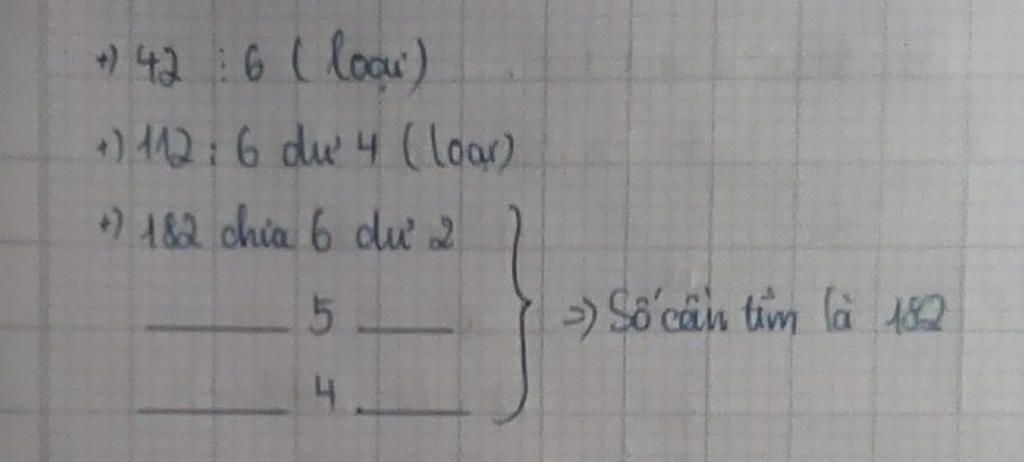 +) 42 : 6 (loại)
+) 112 : 6 dư 4 (loại)
+) 182 chia 6 dư 2
_____ 5 _____
_____ 4 _____
=> Số cần tìm là 182